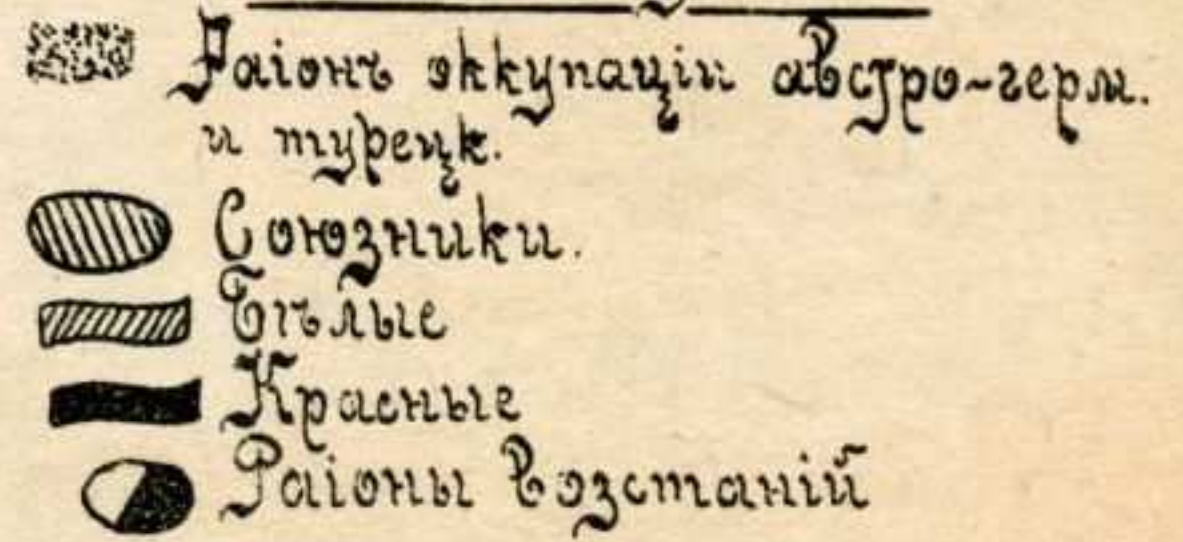 Раіонъ оккупаціи австро-герм.
и турецк.
Союзники.
Бѣлые
Красные
Раіоны возстаній